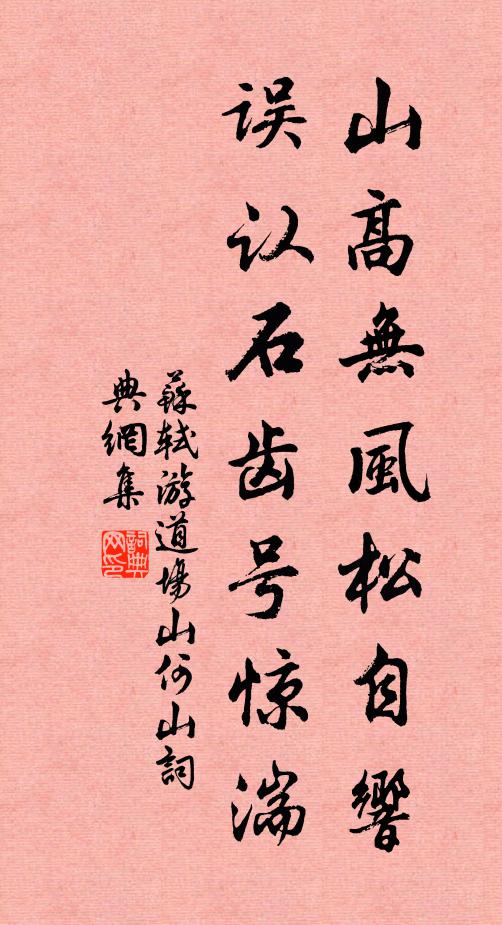 山高無風松自響
误认石齿号惊湍
蘇轼游道場山何山詞
典網集
詞典
网印